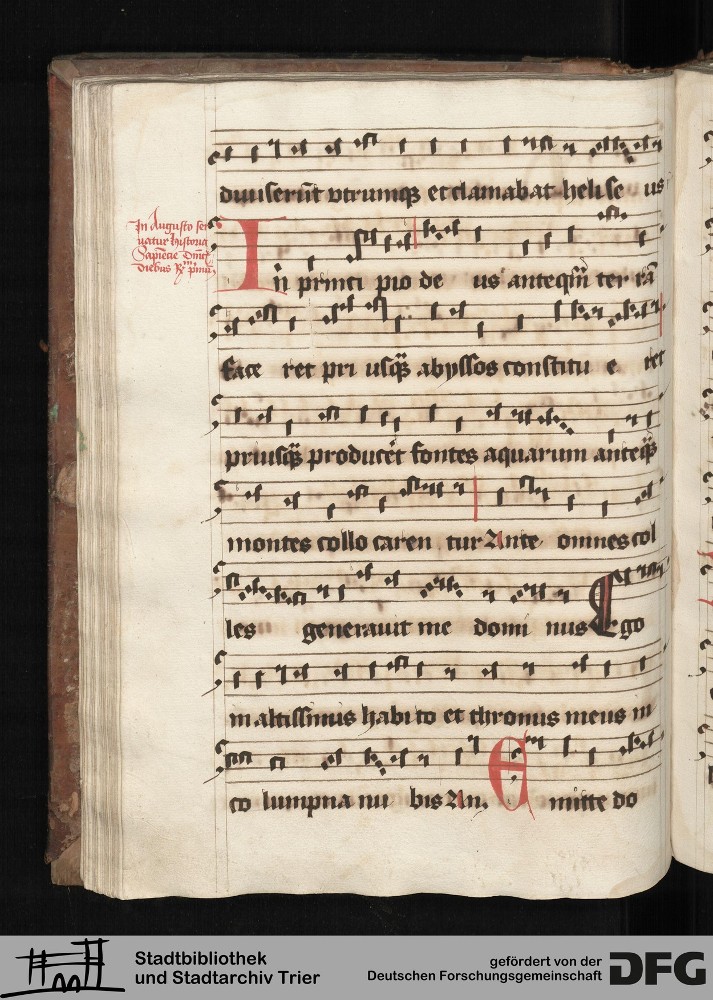 diuiserūt vtrumqꝫ et clamabat helise us
In Augusto ser
uatur hystoria
Sapiēcie Dnicis
diebus Rm primū
In princi pio de us anteqm̄ ter rā
face ret pri usqꝫ abyssos constitu e ret
priusqꝫ producer̄t fontes aquarum anteqꝫ
montes collo caren tur Ante omnes col
les generauit me domi nus Ego
in altissimis habi to et thronus meus in
co lumpna nu bis An. Emitte do
Stadtbibliothek
und Stadtarchiv Trier
gefördert von der
Deutschen Forschungsgemeinschaft
DFG